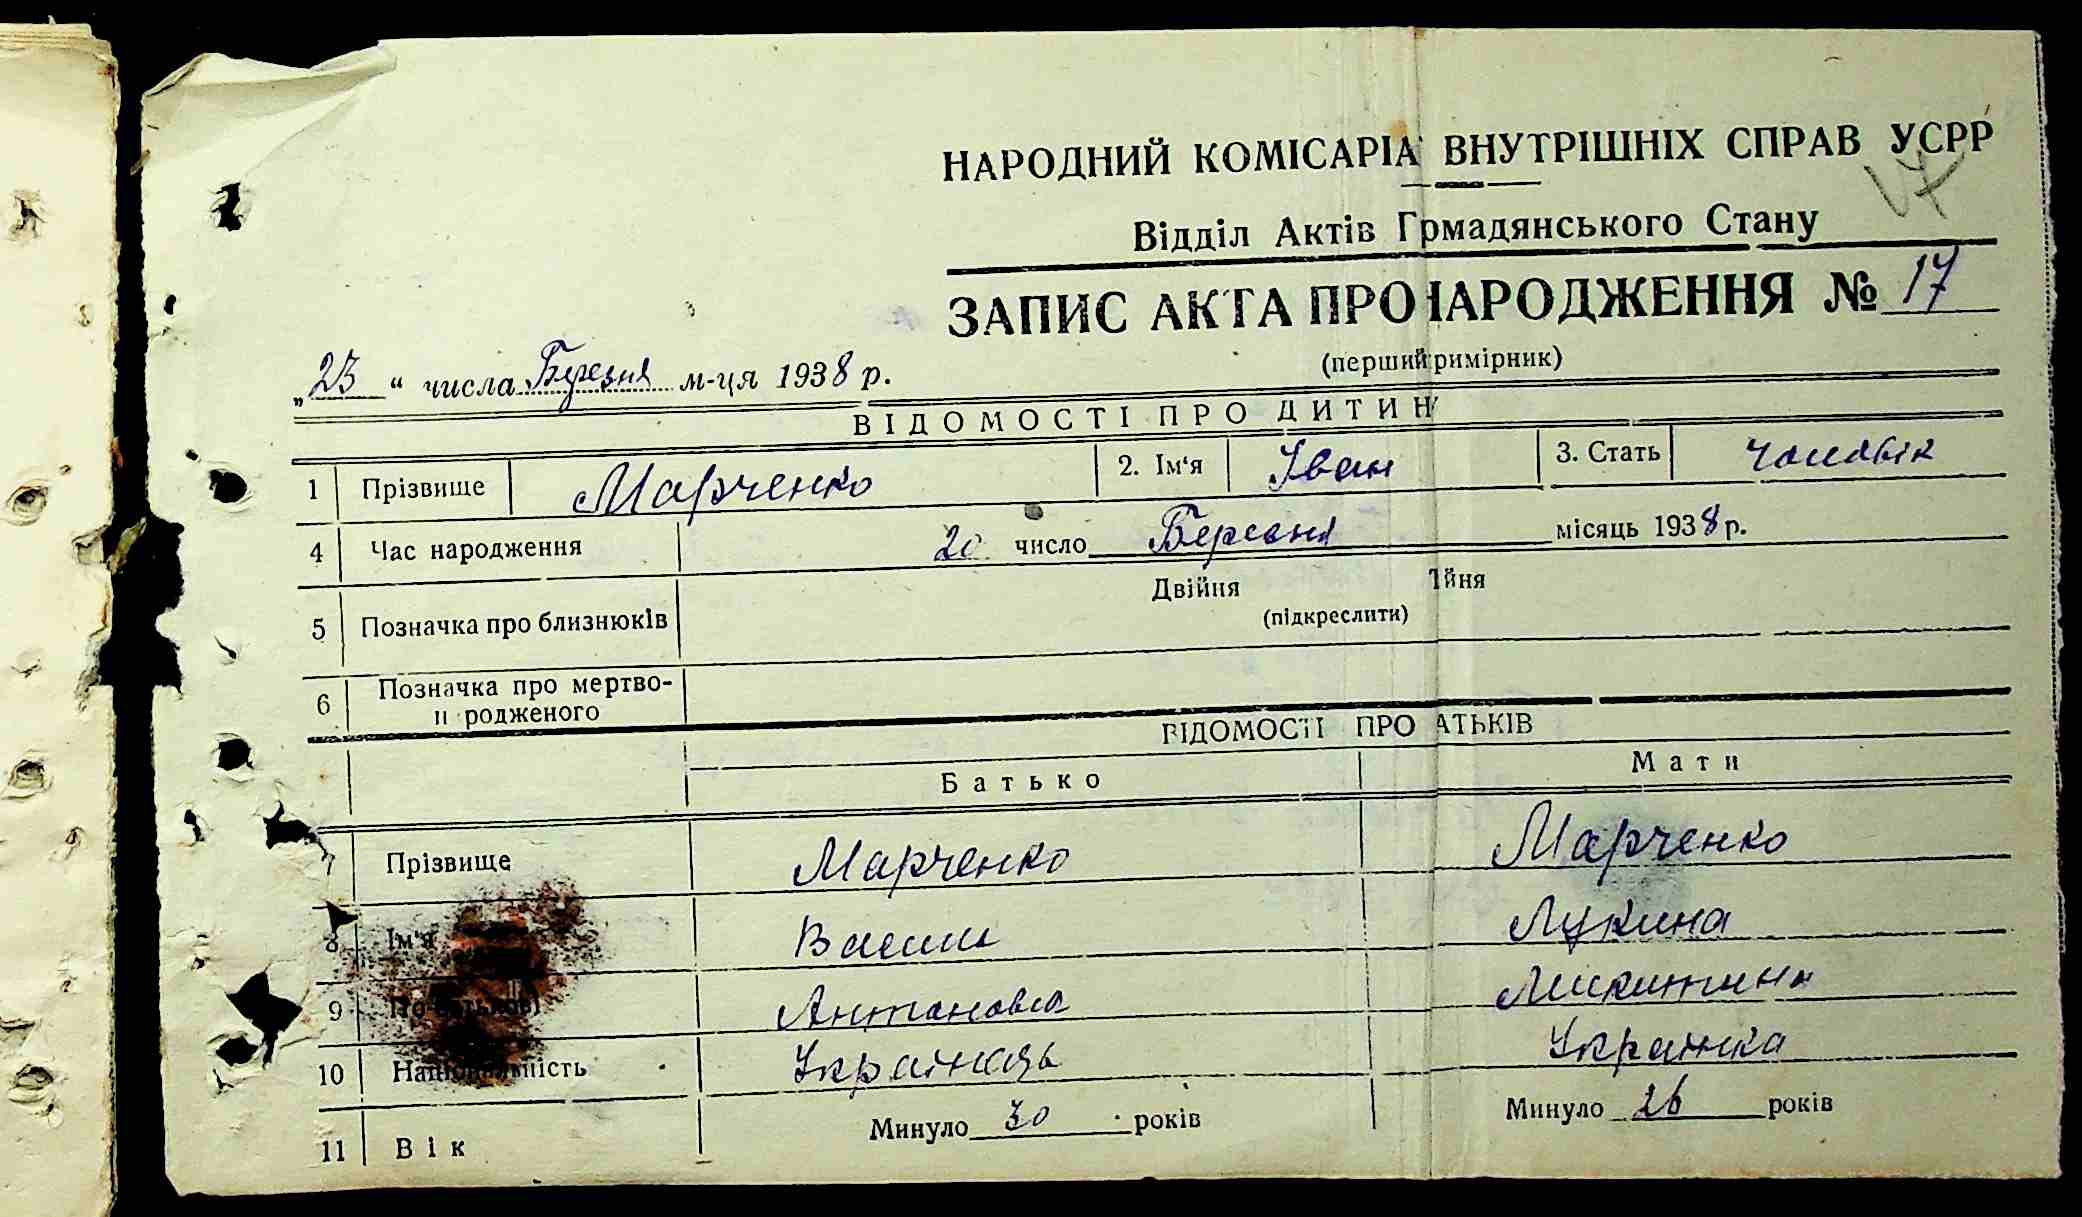 НАРОДНИЙ КОМІСАРІА ВНУТРІШНІХ СПРАВ УСРР
17
Відділ Актів Грмадянського Стану
ЗАПИС АКТА ПРО НАРОДЖЕННЯ № 17
(перший римірник)
„23“ числа Березня м-ця 1938 р.
ВІДОМОСТІ ПРО ДИТИН
1 Прізвище Марченко 2. Ім‘я Іван 3. Стать чоловік
4 Час народження 20 число Березня місяць 1938 р.
5 Позначка про близнюків Двійня йня
(підкреслити)
6 Позначка про мертво-
родженого
ВІДОМОСТІ ПРО АТЬКІВ
Батько Мати
7 Прізвище Марченко Марченко
8 Ім‘я Василь Лукина
9 Антонович Микитина
10 Національність Українець Українка
11 Вік Минуло 30 років Минуло 26 років